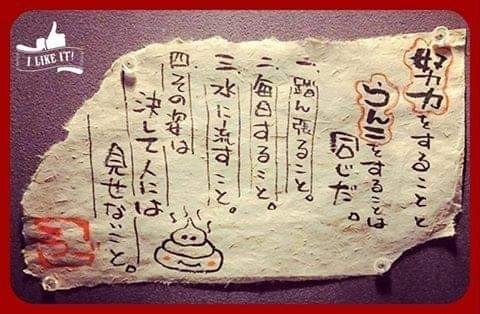 I LIKE IT!
努力をすることと
うんこをすることは
同じだ。
一、踏ん張ること。
二、毎日すること。
三、水に流すこと。
四、その姿は
決して人には
見せないこと。